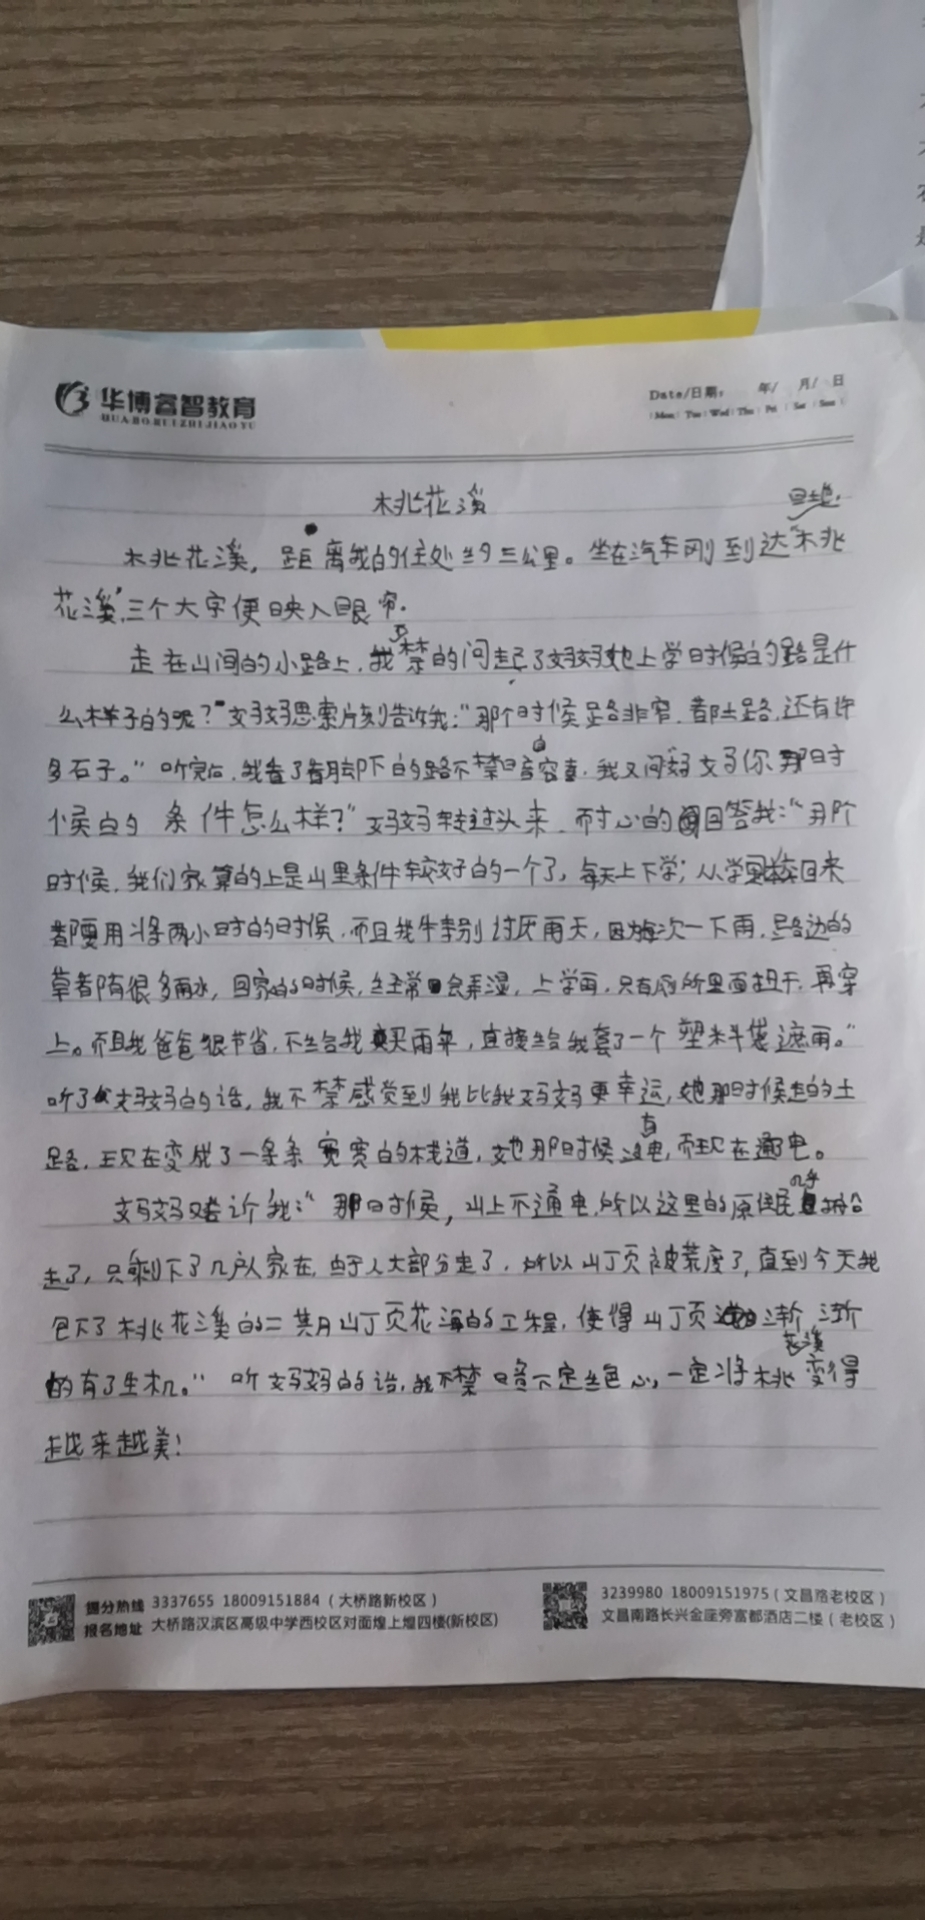 华博睿智教育
HUA BO RUI ZHI JIAO YU
Date/日期: 年/ 月/ 日
Mon Tue Wed Thu Fri Sat Sun
桃花溪
桃花溪，距离我的住处约三公里。坐在汽车刚到达目地，“桃
花溪”三个大字便映入眼帘.
走在山间的小路上，我不禁的问起了妈妈她上学时候的路是什
么样子的呢？”妈妈思索片刻告诉我：“那个时候路非窄，都土路，还有许
多石子。”听完后，我看了看脚下的路不禁暗自容喜，我又问“妈妈你那时
候的条件怎么样？”妈妈转过头来，耐心的回答我：“那个
时候，我们家算的上是山里条件较好的一个了，每天上下学；从学校回来
都要用将两小时的时候，而且我特别讨厌雨天，因为每次一下雨，路边的
草都有很多雨水，回家的时候，经常会弄湿，上学再，只有厕所里面扭干，再穿
上。而且我爸爸很节省，不给我买雨伞，直接给我套了一个塑料袋遮雨。”
听了妈妈的话，我不禁感觉到我比我妈妈更幸运，她那时候走的土
路，现在变成了一条条宽宽的栈道，她那时候没有电，而现在通电。
妈妈又告诉我：“那时候，山上不通电，所以这里的原住民几乎搬
走了，只剩下了几户人家在，由于人大部分走了，所以山顶被荒度了，直到今天我
包下了桃花溪的二期山顶花海的工程，使得山顶渐渐
的有了生机。”听妈妈的话，我不禁暗下定绝心，一定将桃花溪变得
越来越美！
提分热线 3337655 18009151884（大桥路新校区）
报名地址 大桥路汉滨区高级中学西校区对面煌上煌四楼(新校区)
3239980 18009151975（文昌路老校区）
文昌南路长兴金座旁富都酒店二楼（老校区）